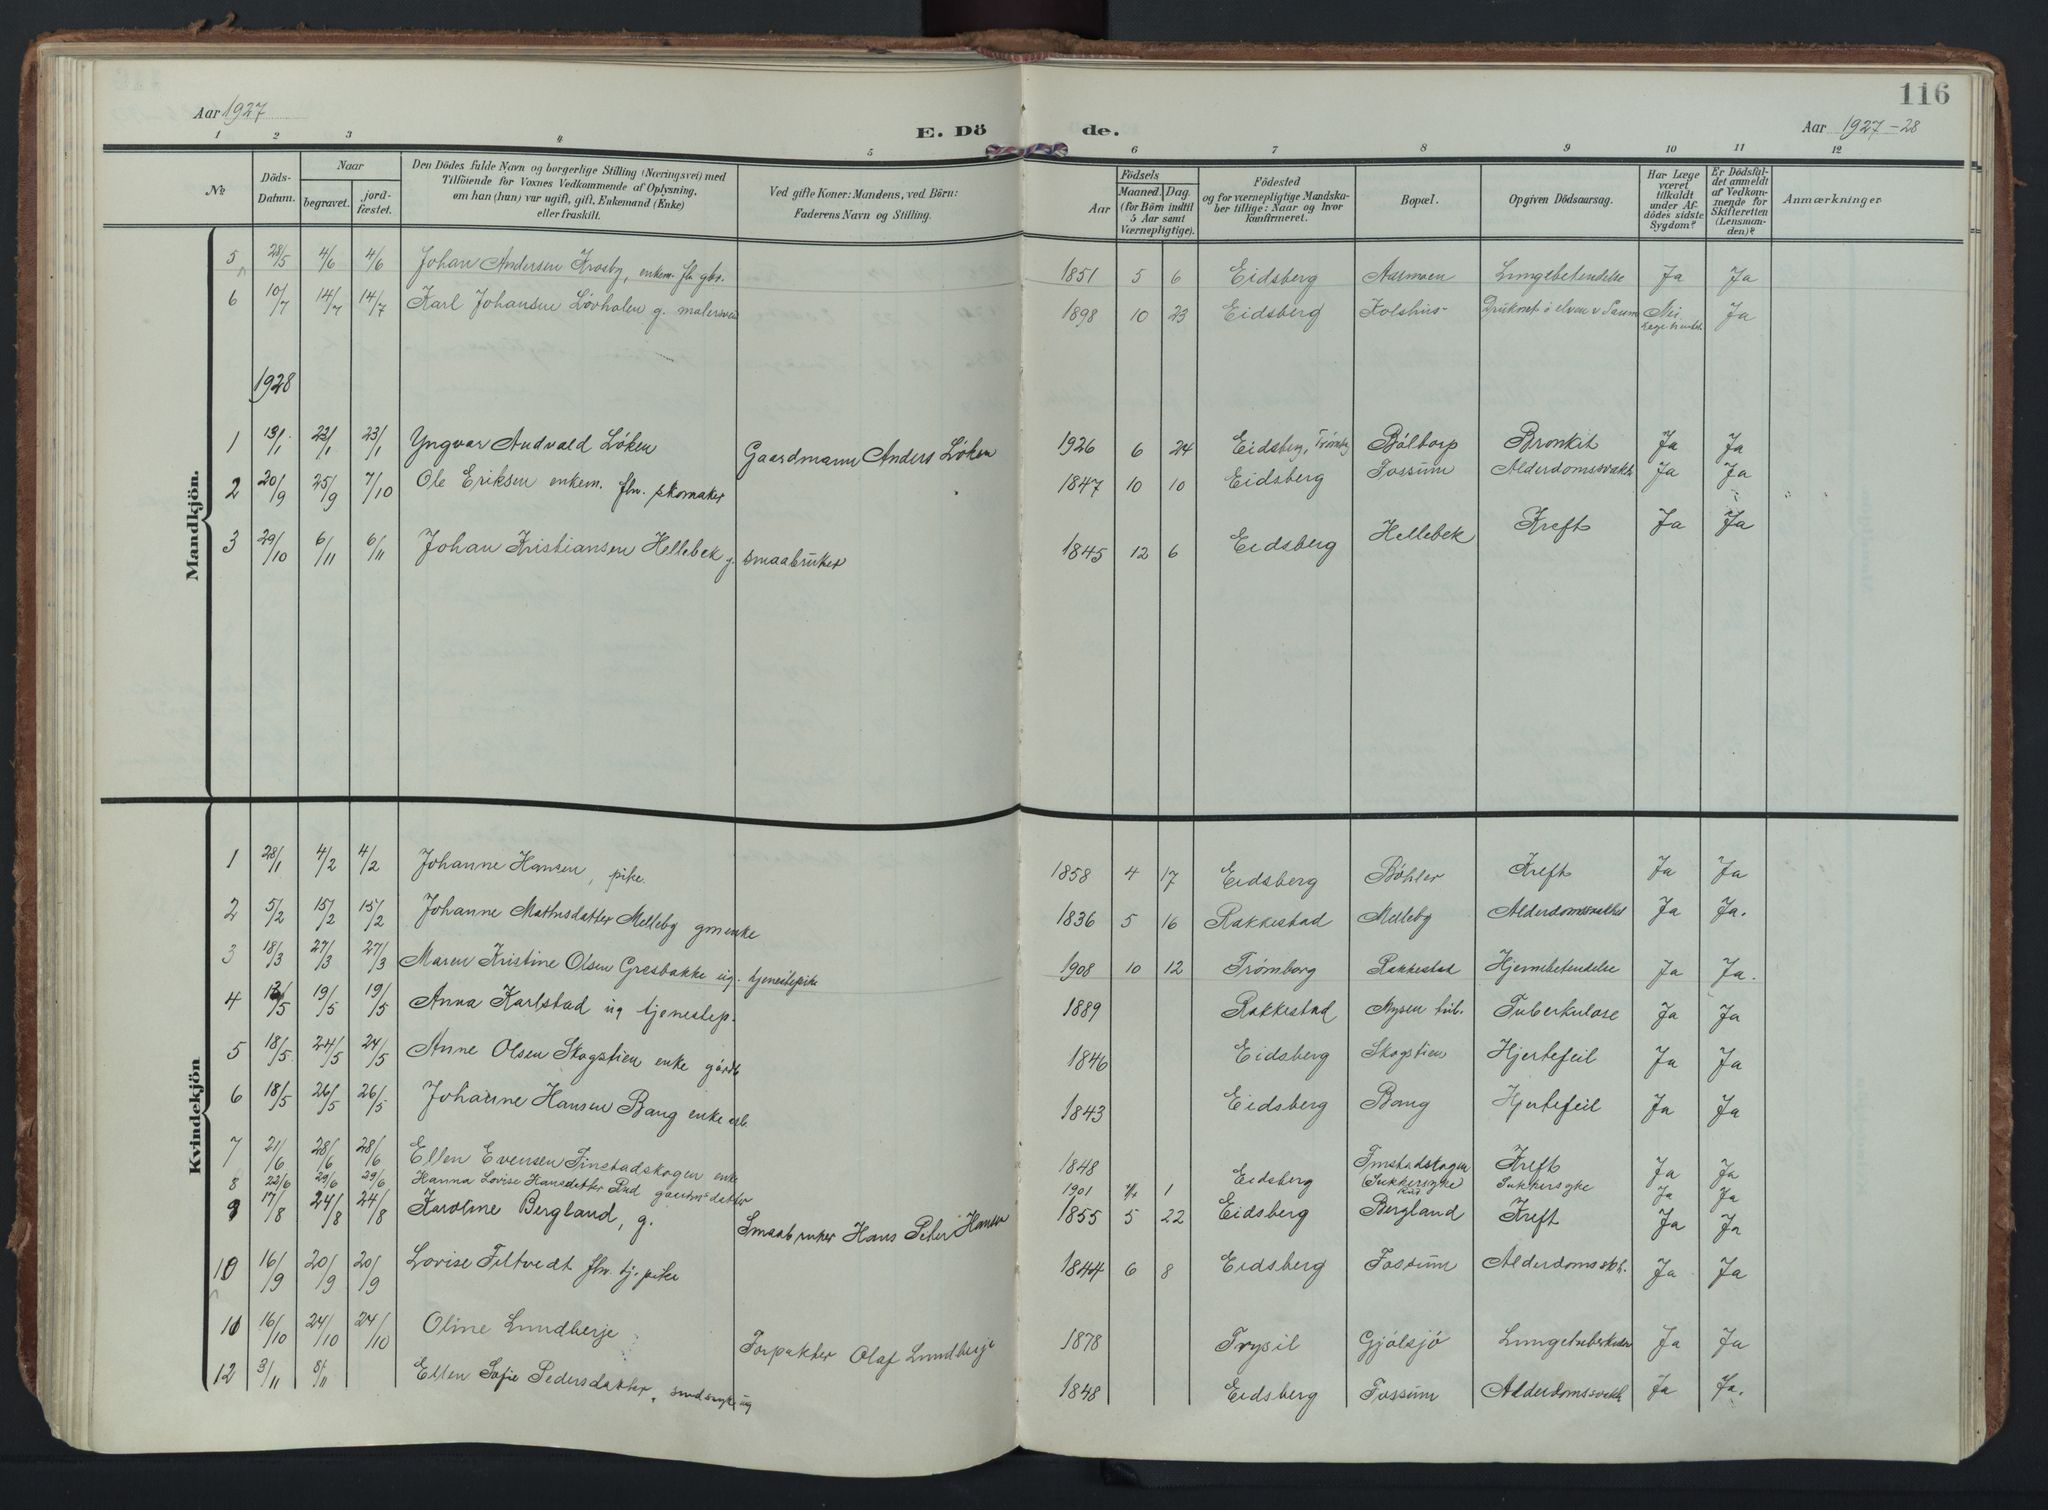 Aar 1927
E. Dö
de.
116
Aar 1927-28
1 2 3 4 5 6 7 8 9 10 11 12
№
Döds-Datum.
Naar
begravet.
jordfæstet.
Den Dödes fulde Navn og borgerlige Stilling (Næringsvei) med
Tilföiende for Voxnes Vedkommende af Oplysning,
om han (hun) var ugift, gift, Enkemand (Enke)
eller fraskilt.
Ved gifte Koner: Mandens, ved Börn:
Faderens Navn og Stilling.
Aar
Födsels
Maaned. Dag.
(for Börn indtil
5 Aar samt
Værnepligtige).
Födested
og for værnepligtige Mandskaber tillige: Naar og hvor
konfirmeret.
Bopæl.
Opgiven Dödsaarsag.
Har Læge
været
tilkaldt
under Afdödes sidste
Sygdom?
Er Dödsfaldet anmeldt
af Vedkommende for
Skifteretten
(Lensmanden)?
Anmærkninger
Mandkjön.
5 28/5 4/6 4/6 Johan Andersen Krosby, enkem. fh. gbr. 1851 5 6 Eidsberg Aasmoen Lungebetendelse Ja Ja
6 10/7 14/7 14/7 Karl Johansen Løvhalen g. malersven 1898 10 23 Eidsberg Kolshus Druknet i elven v Nei Ja
1928
1 13/1 23/1 23/1 Yngvar Andvald Løken Gaardmann Anders Løken 1926 6 24 Eidsberg, Trømbg Båltorp Bronkit Ja Ja
2 20/9 25/9 7/10 Ole Eriksen enkem. fhv. skomaker 1847 10 10 Eidsberg Fossum Alderdomssvakh Ja Ja
3 29/10 6/11 6/11 Johan Kristiansen Hellebek g. smaabruker 1845 12 6 Eidsberg Hellebek Kreft Ja Ja
Kvindekjön
1 28/1 4/2 4/2 Johanne Hansen, pike. 1858 4 17 Eidsberg Bøhler Kreft Ja Ja
2 5/2 15/2 15/2 Johanne Mathisdatter Melleby gmenke 1836 5 16 Rakkestad Melleby Alderdomssvakhet Ja Ja.
3 18/3 27/3 27/3 Maren Kristine Olsen Gresbakke ug. tjenestepike 1908 10 12 Trømborg Rakkestad Hjernebetendelse Ja Ja.
4 13/5 19/5 19/5 Anna Karlstad ug tjenestep. 1889 Rakkestad Mysen tub. Tuberkulose Ja Ja
5 18/5 24/5 24/5 Anne Olsen Skogstien enke gårdb 1846 Eidsberg Skogstien Hjertefeil Ja Ja
6 18/5 26/5 26/5 Johanne Hansen Bang enke 1843 Eidsberg Bang Hjertefeil Ja Ja
7 21/6 28/6 28/6 Ellen Evensen Finstadskogen enke 1848 Eidsberg Finstadskogen Kreft Ja Ja
8 22/6 29/6 29/6 Hanna Lovise Hansdatter Rud gaardm. datter 1901 1 Sukkersyke Rud Sukkersyke Ja Ja
9 17/8 24/8 24/8 Karoline Bergland, g. Smaabruker Hans Peter Hansen 1855 5 22 Eidsberg Bergland Kreft Ja Ja
10 16/9 20/9 20/9 Lovise Filtvedt fhv. tj. pike 1844 6 8 Eidsberg Fossum Alderdomssvkh. Ja Ja
11 16/10 24/10 24/10 Oline Lundberje Forpakter Olaf Lundberje 1878 Trysil Gjølsjø Lungetuberkulose Ja Ja
12 3/11 8/11 Ellen Sofie Pedersdatter, sindssyk ug 1848 Eidsberg Fossum Alderdomssvakh Ja Ja.